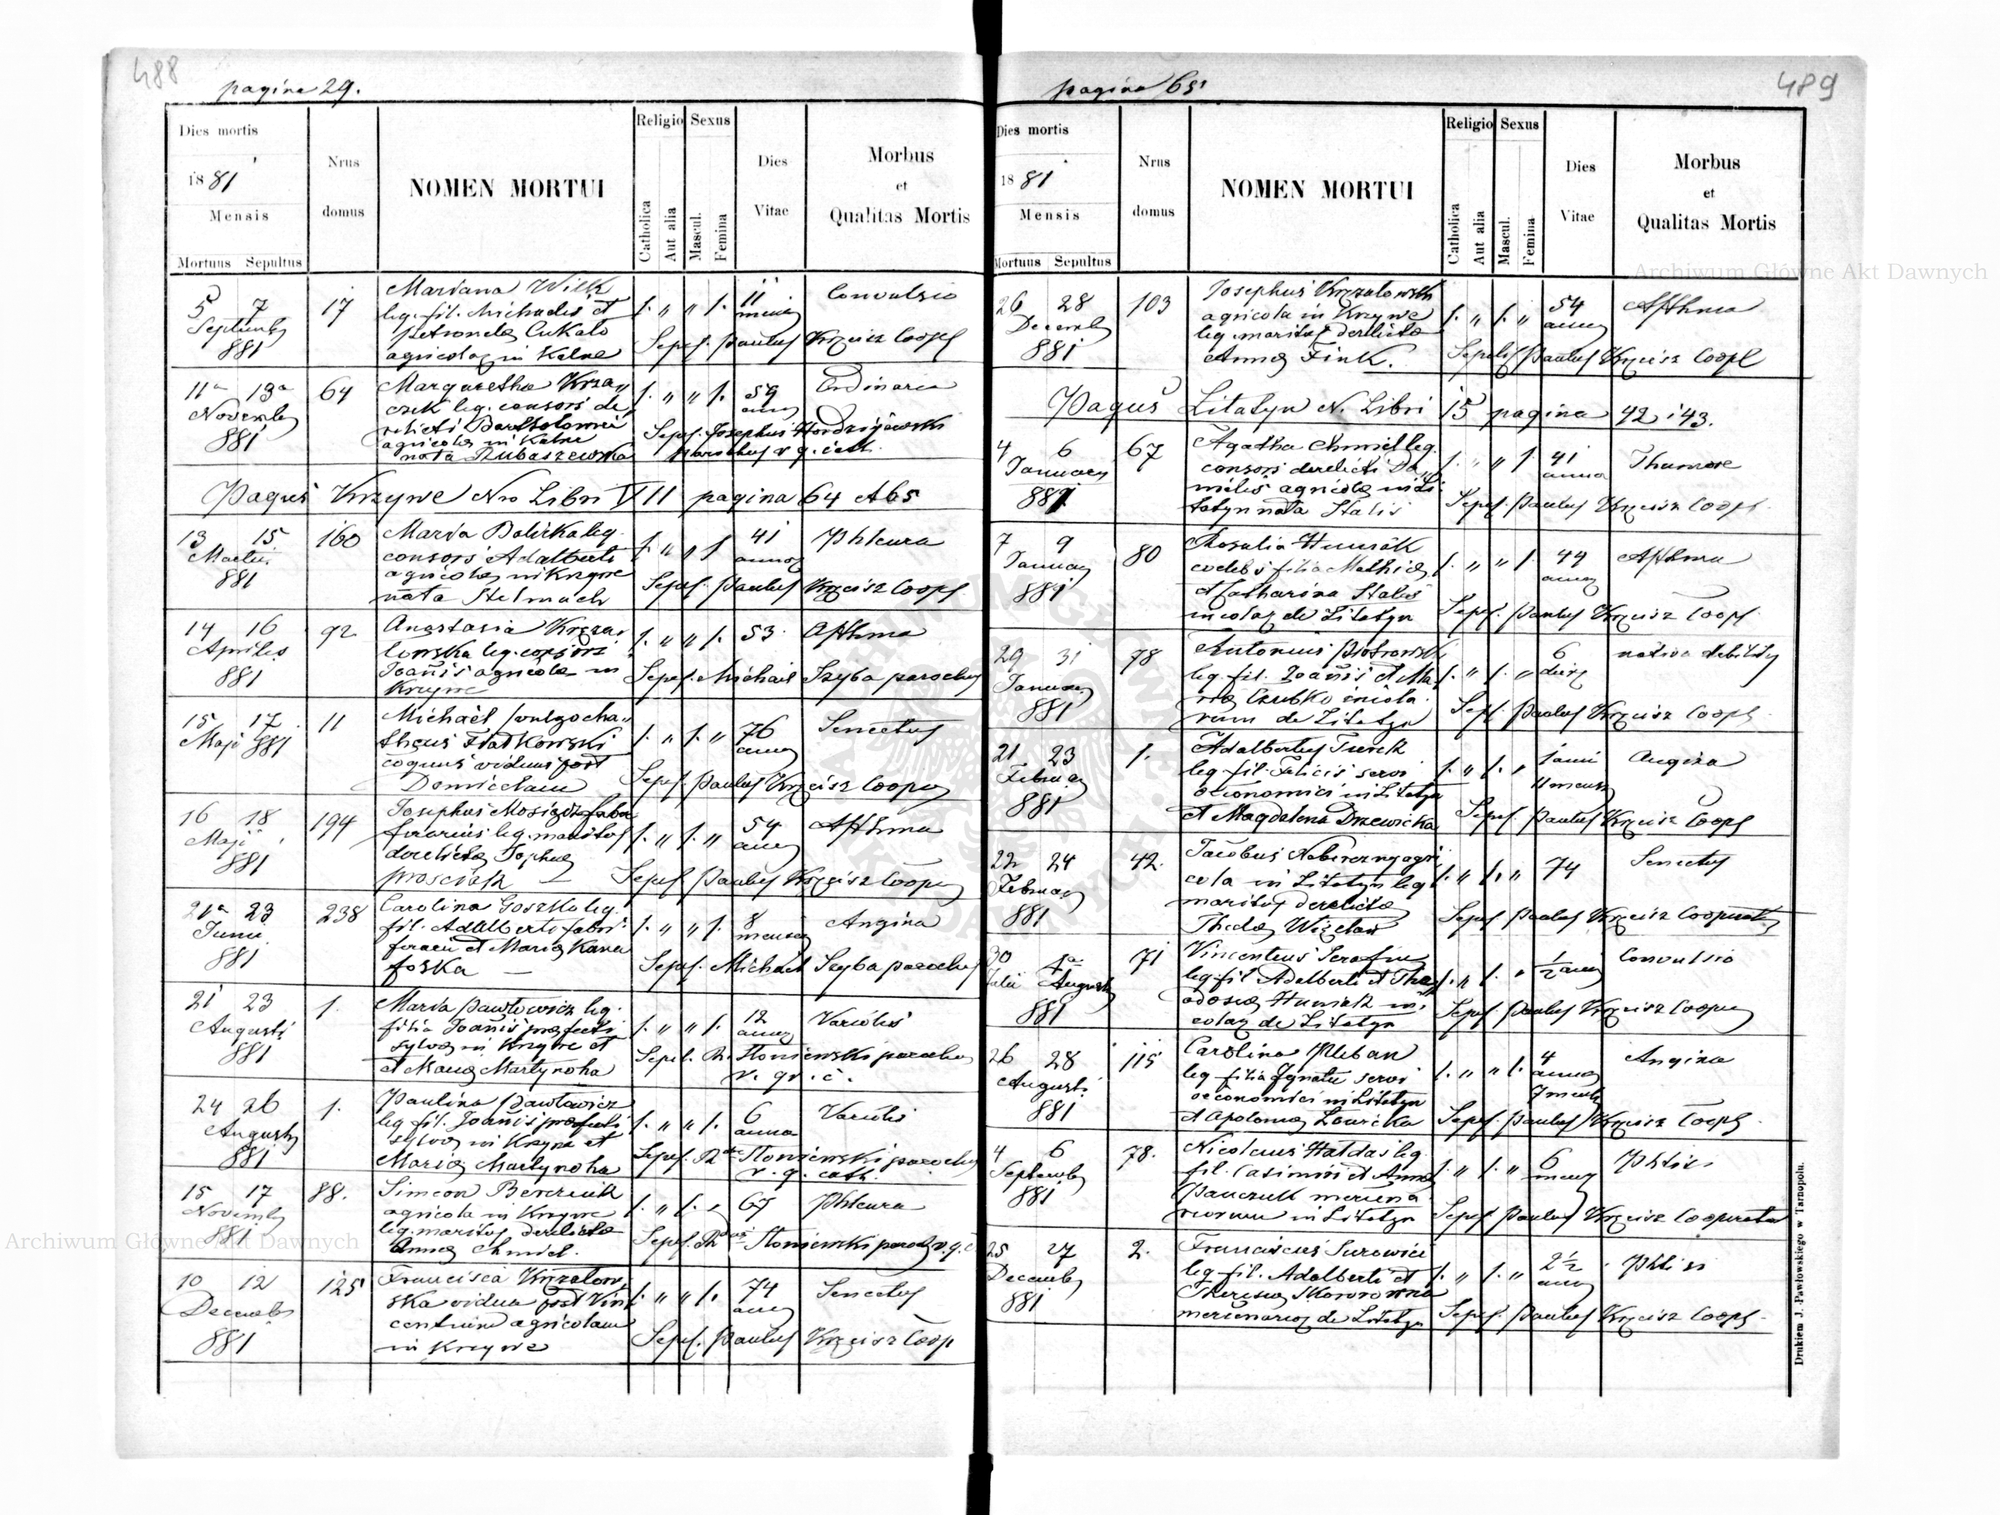 488
pagina 29.
Dies mortis
1881
Mensis
Mortuus Sepultus
Nrus
domus
NOMEN MORTUI
Religio
Catholica
Aut alia
Sexus
Mascul.
Femina
Dies
Vitae
Morbus
et
Qualitas Mortis
5 7
Septemb
881
17
Mariana Wilk
leg. fil. Michaelis et
Petronela Cukalo
agricola in Kalne
1. " " 1.
11
mens
Convulsio
Sepel. Paulus Krzcisz Coopl
11a 13a
Novemb
881
64
Margaretha Krza
czek leg. consors de
relicti Bartholomei
agricola in Kalne
nata Rubaszewska
1. " " 1.
59
ann
Ordinaria
Sepel. Josephus
parochus r. g. cath.
Pagus Krzywe Nro Libri VII pagina 64 et 65
13 15
Martii
881
160
Maria leg.
consors Adalberti
agricola in Krzywe
nata Stelmach
1. " " 1
41
annor
Phleura
Sepel. Paulus Krzcisz Coopl.
14 16
Aprilis
881
92
Anastasia Krzza
lowska leg. consors
Joanis agricola in
Krzywe
1. " " 1.
53.
Asthma
Sepel. Michael Szyba parochus
15 17
Maji 881
11
Michael
Fiatkowski
coquus viduus post
1. " 1. "
76
ann
Senectus
Sepel. Paulus Krzcisz Coopr
16 18
Maji
881
194
Josephus
leg. maritus
derelicta Sophia
1. " 1. "
54
ann
Asthma
Sepel. Paulus Krzcisz Coopr
21a 23
Junii
881
238
Carolina Goszko leg.
fil. Adalberti fabri
ferarii et Maria Kana
foska
1. " " 1.
8
menses
Angina
Sepel. Michael Szyba parochus
21 23
Augusti
881
1.
Maria Pawlowicz leg.
filia Joanis prefecti
sylva in Krzywe et
et Maria Martynoha
1. " " 1.
12
annor
Variolis
Sepel. R. Sloniewski parochus
r. gr. c.
24 26
Augusti
881
1.
Paulina Pawlowicz
leg. fil. Joanis prefecti
sylva in Krzywe et
Maria Martynoha
1. " " 1.
6
annor
Variolis
Sepel. Rdus Sloniewski parochus
r. g. cath.
15 17
Novemb
881
88.
Simeon Bereziuk
agricola in Krzywe
leg. maritus derelicta
Anna Chmiel.
1. " 1. "
67
Phleura
Sepel. Rdus Sloniewski paroch r. g. c
10 12
Decemb
881
125
Francisca Krzzalow
ska vidua post Vin
centium agricolam
in Krzywe
1. " " 1.
74
ann
Senectus
Sepel. Paulus Krzcisz Coop
489
pagina 65
Dies mortis
1881
Mensis
Mortuus Sepultus
Nrus
domus
NOMEN MORTUI
Religio
Catholica
Aut alia
Sexus
Mascul.
Femina
Dies
Vitae
Morbus
et
Qualitas Mortis
26 28
Decemb
881
103
Josephus Krzzalowski
agricola in Krzywe
leg. maritus derelicta
Anna Fink.
1. " 1. "
54
ann
Asthma
Sepel. Paulus Krzcisz Coopl
Pagus Litatyn N. Libri 15 pagina 42 i 43.
4 6
Januar
881
67
Agatha Chmiel leg.
consors derelicti Da
nielis agricola in Li
tatyn nata Stalis
1. " " 1.
41
annor
Thumore
Sepel. Paulus Krzcisz Coopl.
7 9
Januar
881
80
Rosalia Humiak
coelebs filia Mathia
et Catharina Stalis
incolar de Litatyn
1. " " 1.
44
annor
Asthma
Sepel. Paulus Krzcisz Coopl.
29 31
Januar
881
78
Antonius Piotrowski
leg. fil. Joanis et Ma
ria Czubko incola
rum de Litatyn
1. " 1. "
6
dies
nativa debilitas
Sepel. Paulus Krzcisz Coopl.
21 23
Februar
881
1.
Adalbertus Turek
leg. fil. Felicis servi
oeconomici in Litatyn
et Magdalena Drzewicka
1. " 1. "
1 anni
11 mens
Angina
Sepel. Paulus Krzcisz Coopl
22 24
Februar
881
42.
Jacobus Nabereznyj agri
cola in Litatyn leg
maritus derelicta
Thecla
1. " 1. "
74
Senectus
Sepel. Paulus Krzcisz Cooperator
30 1a
Julii Augusti
881
71
Vincentius Serafin
leg. fil Adalberti et The
odosia Humiak in
colar de Litatyn
1. " 1. "
1/2 ann
Convulsio
Sepel. Paulus Krzcisz Coopr
26 28
Augusti
881
115
Carolina Pleban
leg filia Ignatii servi
oeconomici in Litatyn
et Apolonia Lawicka
1. " " 1.
4
annor
7 mens
Angina
Sepel. Paulus Krzcisz Coopl.
4 6
Septemb
881
78.
Nicolaus Haldas leg.
fil. Casimiri et Anna
Panczuk mercena
riorum in Litatyn
1. " 1. "
6
mens
Phtisis
Sepel. Paulus Krzcisz Cooperator
25 27
Decemb
881
2.
Franciscus Surowiec
leg. fil. Adalberti et
Theresia Skowrowna
mercenarior de Litatyn
1. " 1. "
2 1/2
ann
Phtisis
Sepel. Paulus Krzcisz Coopl.
Drukiem J. Pawłowskiego w Tarnopolu.
Archiwum Główne Akt Dawnych
Archiwum Główne Akt Dawnych